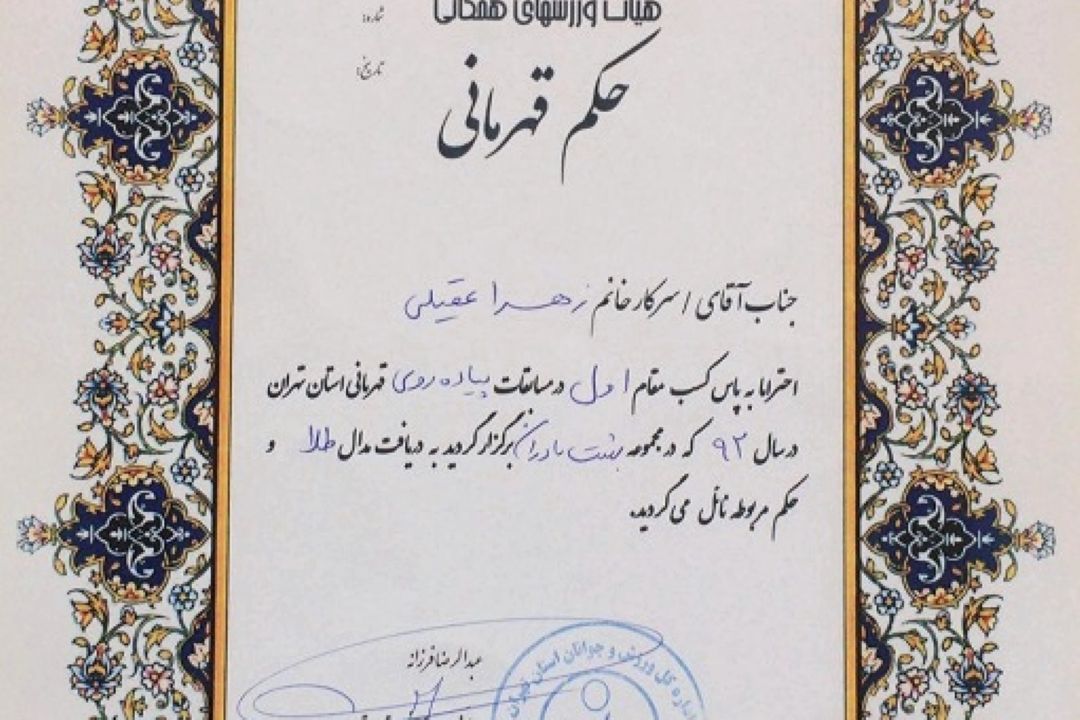 هیات ورزشهای همگانی
شماره:
تاریخ:
حکم قهرمانی
جناب آقای / سرکار خانم زهرا عقیلی
احتراما به پاس کسب مقام اول در مسابقات پیاده روی قهرمانی استان تهران
در سال ۹۲ که در مجموعه بهشت مادران برگزار گردید به دریافت مدال طلا و
حکم مربوطه نائل می گردید.
عبدالرضا فرزانه
اداره کل ورزش و جوانان استان تهران